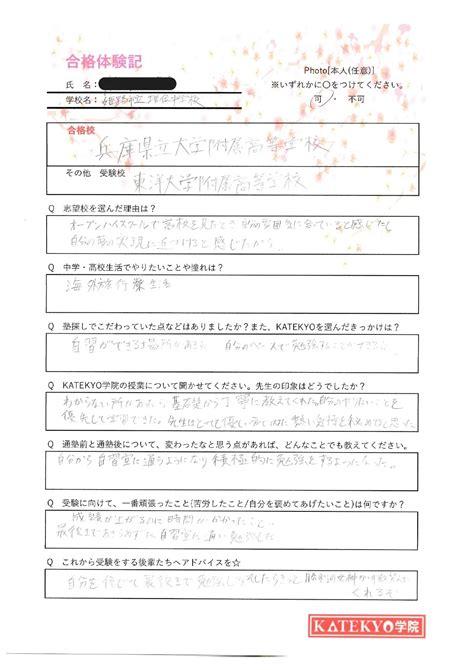 合格体験記
Photo[本人(任意)]
氏 名：
※いずれかに〇をつけてください。
学校名： 中学校
可 ・ 不可
合格校
兵庫県立大学附属高等学校
その他 受験校
東洋大学附属高等学校
Q 志望校を選んだ理由は？
オープンハイスクールで高校を見たとき自分の雰囲気に合っていると感じたし
自分の夢の実現に近づけると感じたから。
Q 中学・高校生活でやりたいことや憧れは？
海外旅行 寮生活
Q 塾探しでこだわっていた点などはありましたか？また、KATEKYOを選んだきっかけは？
自習ができる場所がある。 自分のペースで勉強することができる。
Q KATEKYO学院の授業について聞かせてください。先生の印象はどうでしたか？
わからない所があったら基礎から丁寧に教えてくれた。自分のやりたいことを
優先して学習できた。先生はとても優しい方で 熱い気持を秘めてると思った
Q 通塾前と通塾後について、変わったなと思う点があれば、どんなことでも教えてください。
自分から自習室に通うようになり積極的に勉強をするようになった。
Q 受験に向けて、一番頑張ったこと(苦労したこと/自分を褒めてあげたいこと)は何ですか？
成績が上がるのに時間がかかったこと。
最後まであきらめずに自習室に通い勉強した
Q これから受験をする後輩たちへアドバイスを☆
自分を信じて最後まで勉強し したらきっと勝利の女神が
くれるぞ
KATEKYO学院